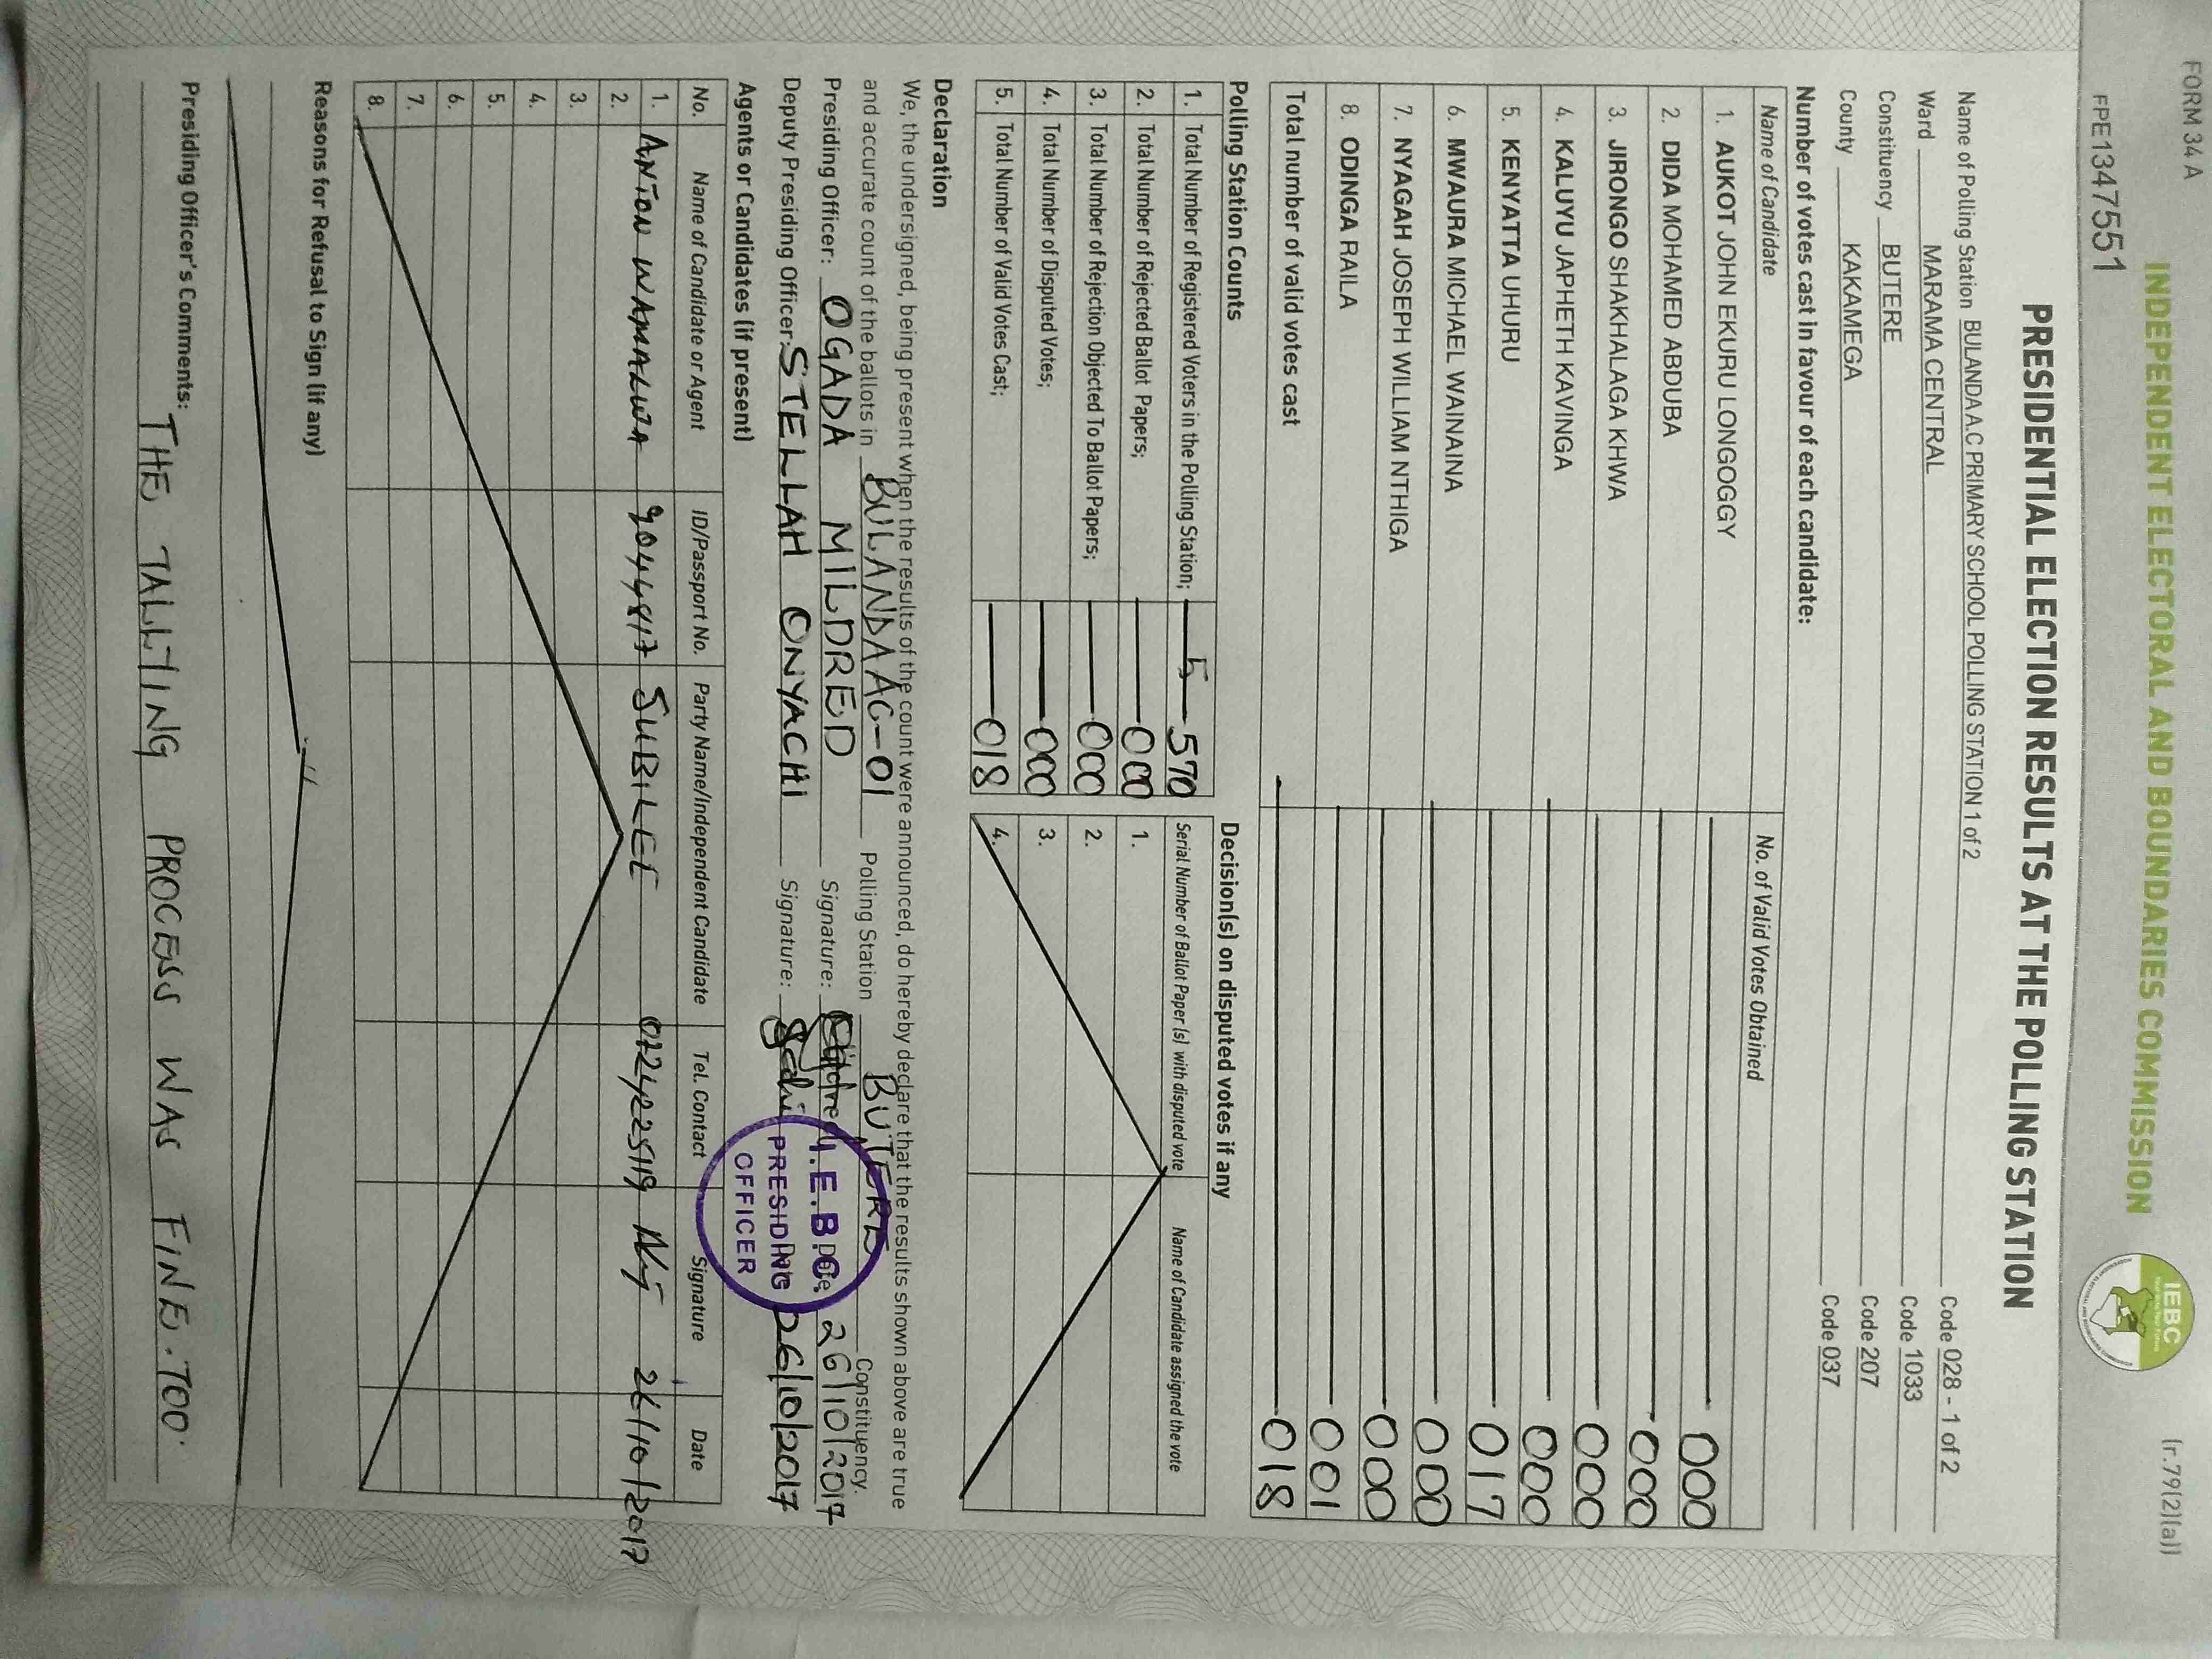 FORM 34 A
(r.79(2)(a))
INDEPENDENT ELECTORAL AND BOUNDARIES COMMISSION
IEBC
FPE1347551
PRESIDENTIAL ELECTION RESULTS AT THE POLLING STATION
Name of Polling Station BULANDA A.C PRIMARY SCHOOL POLLING STATION 1 of 2 Code 028 - 1 of 2
Ward MARAMA CENTRAL Code 1033
Constituency BUTERE Code 207
County KAKAMEGA Code 037
Number of votes cast in favour of each candidate:
Name of Candidate No. of Valid Votes Obtained
1. AUKOT JOHN EKURU LONGOGGY 000
2. DIDA MOHAMED ABDUBA 000
3. JIRONGO SHAKHALAGA KHWA 000
4. KALUYU JAPHETH KAVINGA 000
5. KENYATTA UHURU 017
6. MWAURA MICHAEL WAINAINA 000
7. NYAGAH JOSEPH WILLIAM NTHIGA 000
8. ODINGA RAILA 001
Total number of valid votes cast 018
Polling Station Counts
1. Total Number of Registered Voters in the Polling Station; 5 570
2. Total Number of Rejected Ballot Papers; 000
3. Total Number of Rejection Objected To Ballot Papers; 000
4. Total Number of Disputed Votes; 000
5. Total Number of Valid Votes Cast; 018
Decision(s) on disputed votes if any
Serial Number of Ballot Paper (s) with disputed vote Name of Candidate assigned the vote
1.
2.
3.
4.
Declaration
We, the undersigned, being present when the results of the count were announced, do hereby declare that the results shown above are true
and accurate count of the ballots in BULANDA AC-01 Polling Station BUTERE Constituency.
Presiding Officer: OGADA MILDRED Signature: Date: 26/10/2017
Deputy Presiding Officer: STELLAH ONYACHI Signature: Date 26/10/2017
I.E.B.C.
PRESIDING
OFFICER
Agents or Candidates (if present)
No. Name of Candidate or Agent ID/Passport No. Party Name/Independent Candidate Tel. Contact Signature Date
1. ANTON WAMALWA JUBILEE 26/10/2017
2.
3.
4.
5.
6.
7.
8.
Reasons for Refusal to Sign (if any)
Presiding Officer's Comments:
THE TALLYING PROCESS WAS FINE. TOO.